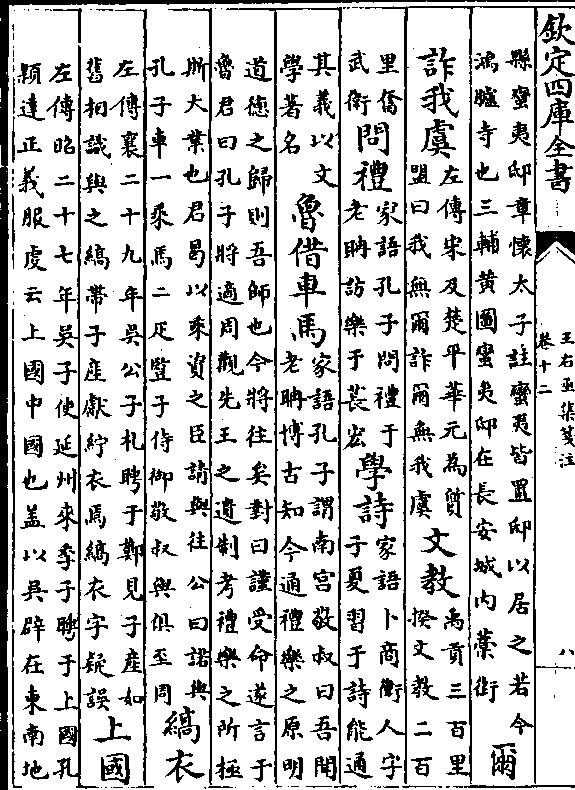 欽定四庫全書
王右丞集箋注
卷十二
八
縣蠻夷邸章懷太子註蠻夷皆置邸以居之若今
鴻臚寺也三輔黄圖蜜夷邸在長安城内藁街
爾
詐我虞
左傳宋及楚平華元為質
盟曰我無爾詐爾無我虞
文教
禹貢三百里
揆文教二百
里奮
武衛
問禮
家語孔子問禮于
老聃訪樂于萇宏
學詩
家語卜商衛人字
子夏習于詩能通
其義以文
學著名
魯借車馬
家語孔子謂南宫敬叔曰吾聞
老聃博古知今通禮樂之原明
道德之歸則吾師也今將往矣對曰謹受命遂言于
魯君曰孔子將適周觀先王之遺制考禮樂之所極
斯大業也君曷以乘資之臣請與往公曰諾與
孔子車一乘馬二疋豎子侍御敬叔與俱至周
縞衣
左傳襄二十九年吳公子札聘于鄭見子産如
舊相識與之縞帶子産獻紵衣焉縞衣字疑誤
上國
左傳昭二十七年吳子使延州來季子聘于上國孔
穎達正義服虔云上國中國也葢以吳辟在東南地